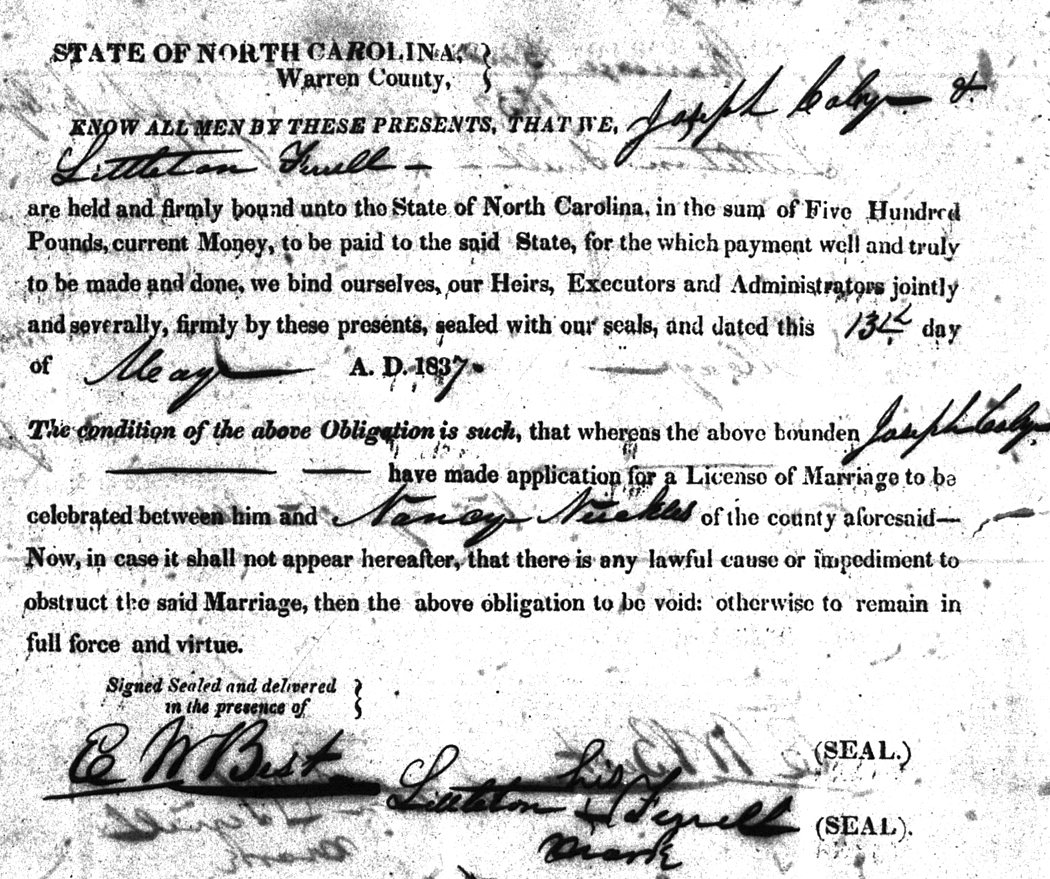 STATE OF NORTH CAROLINA,
Warren County,
KNOW ALL MEN BY THESE PRESENTS, THAT WE, Joseph Coley &
Littleton Ferrell
are held and firmly bound unto the State of North Carolina, in the sum of Five Hundred
Pounds, current Money, to be paid to the said State, for the which payment well and truly
to be made and done, we bind ourselves, our Heirs, Executors and Administrators jointly
and severally, firmly by these presents, sealed with our seals, and dated this 13th day
of May A. D. 1837
The condition of the above Obligation is such, that whereas the above bounden Joseph Coley
have made application for a License of Marriage to be
celebrated between him and Nancy Nuckles of the county aforesaid—
Now, in case it shall not appear hereafter, that there is any lawful cause or impediment to
obstruct the said Marriage, then the above obligation to be void: otherwise to remain in
full force and virtue.
Signed Sealed and delivered
in the presence of
(SEAL.)
E W Best
his
Littleton + Ferrell (SEAL).
mark